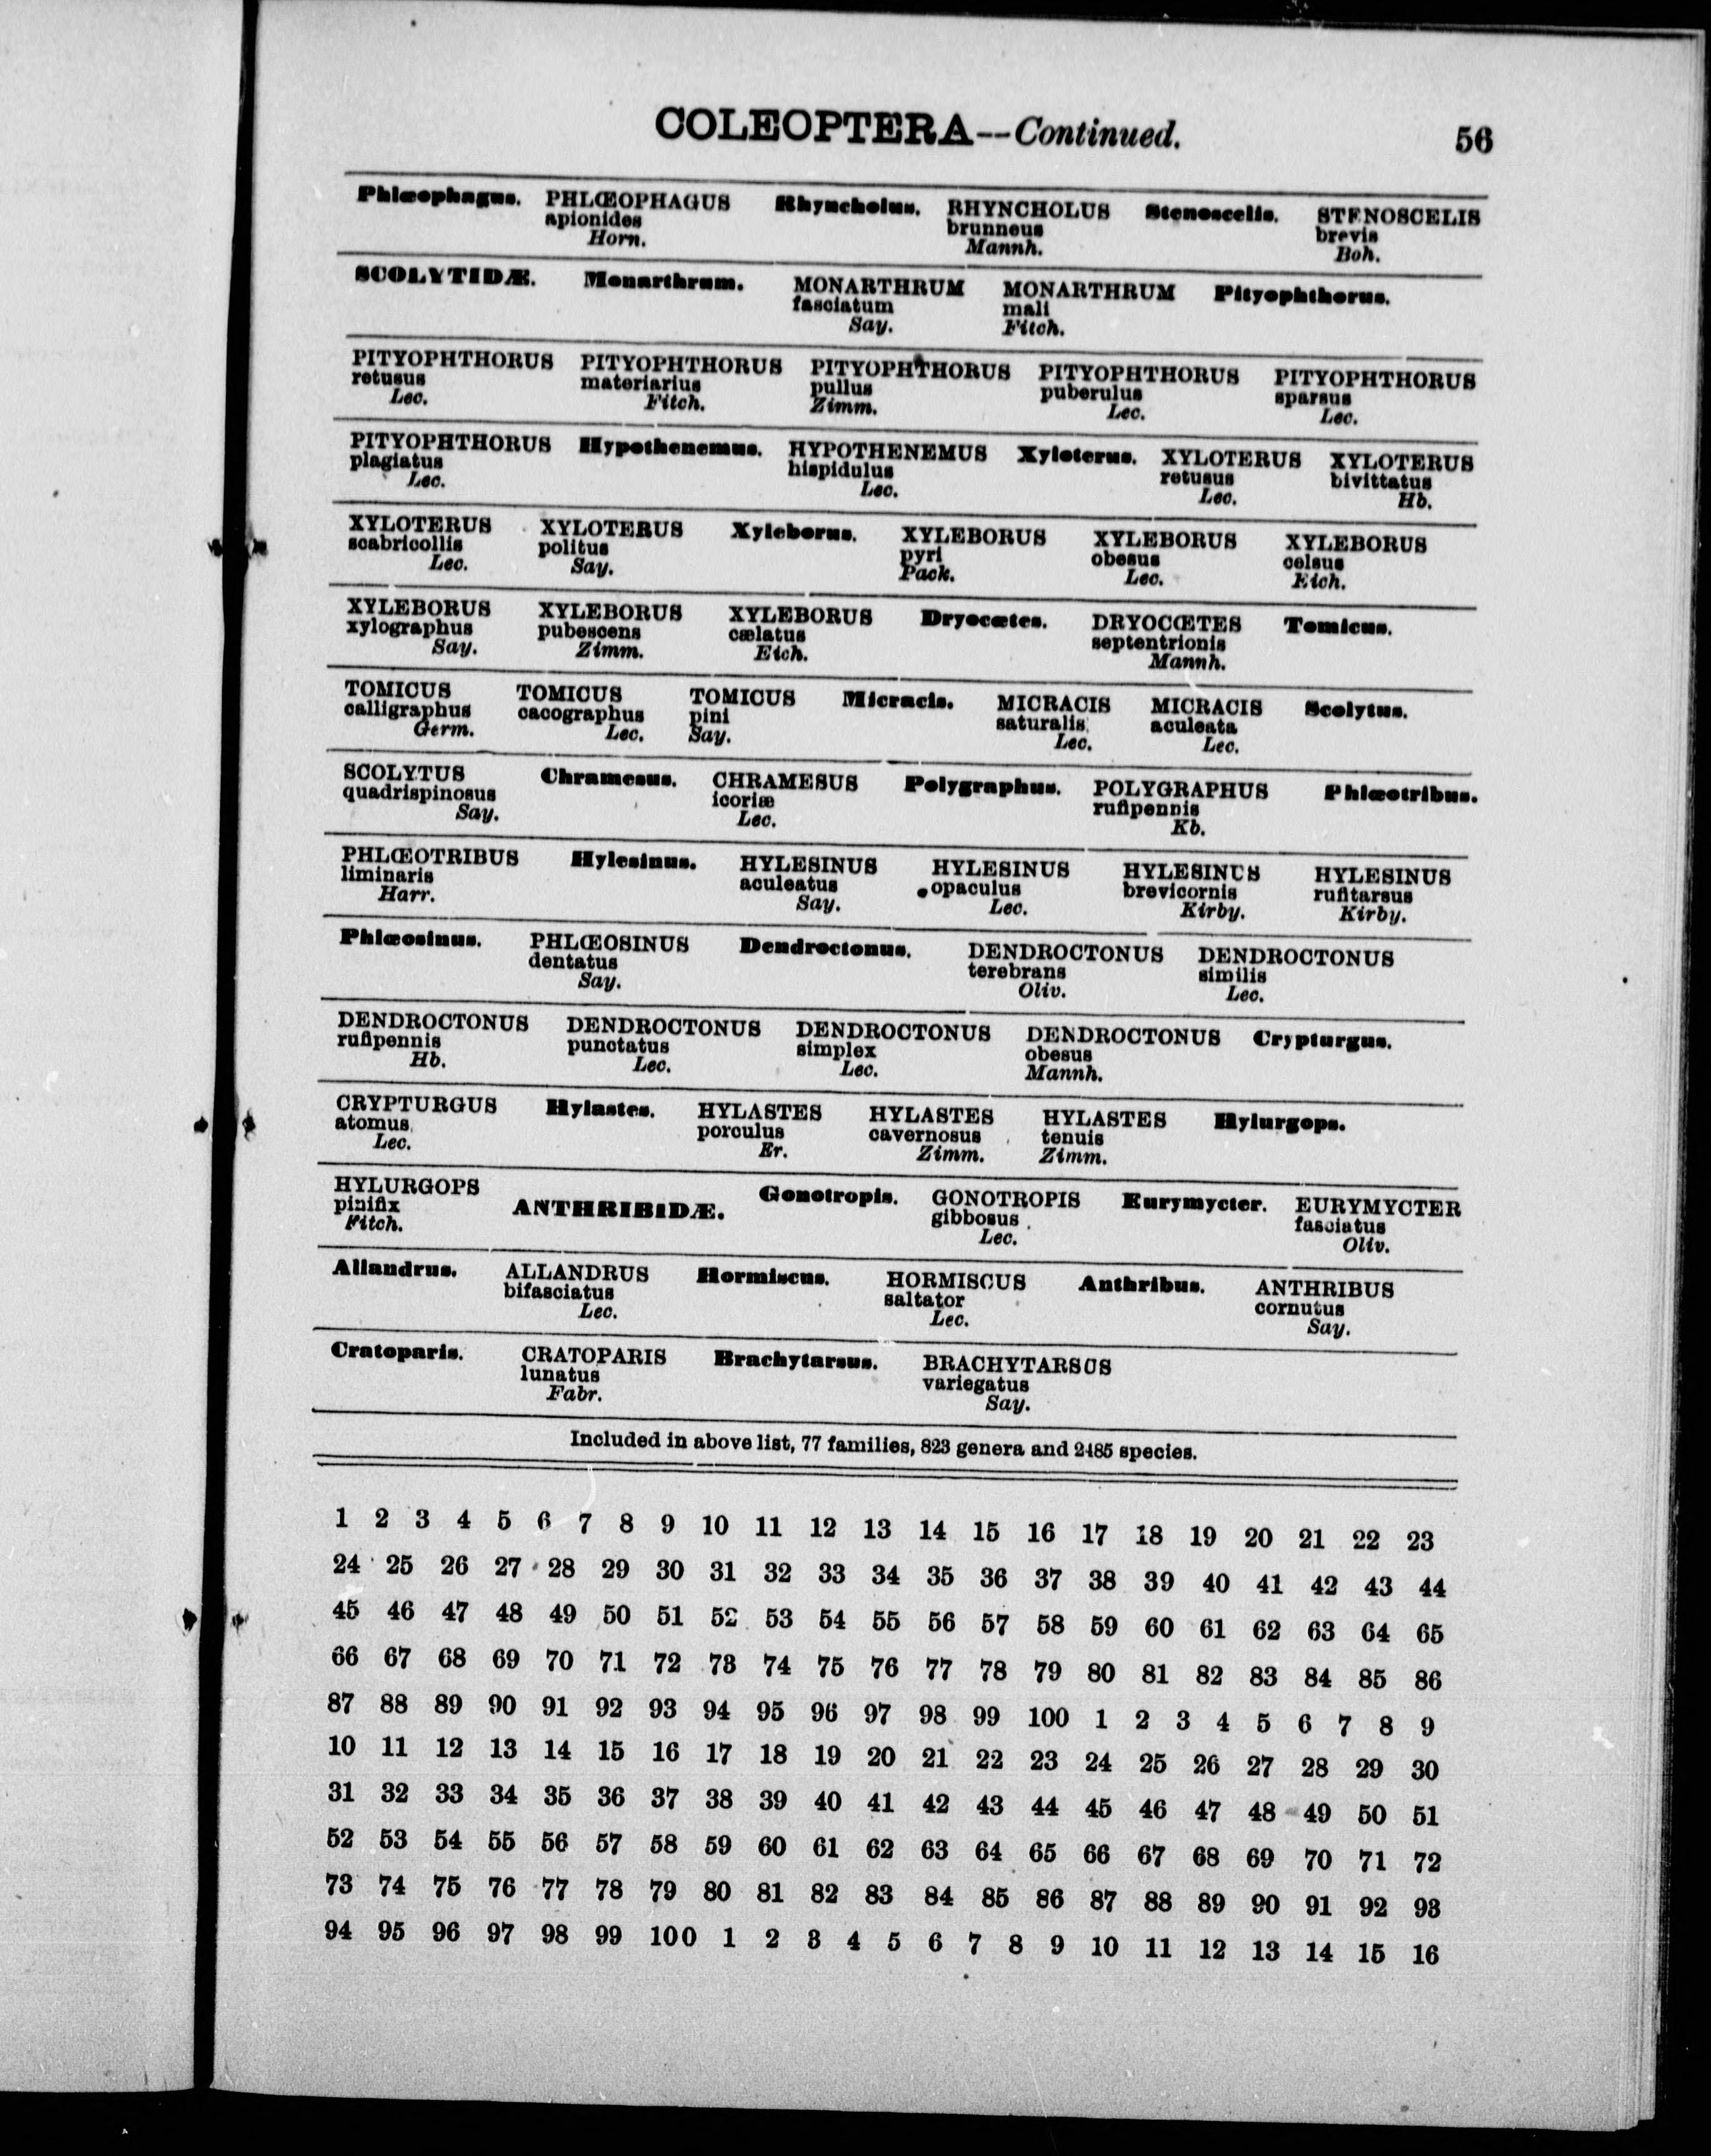 COLEOPTERA--Continued. 56
Phlœophagus. PHLŒOPHAGUS Rhyncholus. RHYNCHOLUS Stenoscelis. STENOSCELIS
apionides brunneus brevis
Horn. Mannh. Boh.
SCOLYTIDÆ. Monarthrum. MONARTHRUM MONARTHRUM Pityophthorus.
fasciatum mali
Say. Fitch.
PITYOPHTHORUS PITYOPHTHORUS PITYOPHTHORUS PITYOPHTHORUS PITYOPHTHORUS
retusus materiarius pullus puberulus sparsus
Lec. Fitch. Zimm. Lec. Lec.
PITYOPHTHORUS Hypothenemus. HYPOTHENEMUS Xyloterus. XYLOTERUS XYLOTERUS
plagiatus hispidulus retusus bivittatus
Lec. Lec. Lec. Hb.
XYLOTERUS XYLOTERUS Xyleborus. XYLEBORUS XYLEBORUS XYLEBORUS
scabricollis politus pyri obesus celsus
Lec. Say. Pack. Lec. Eich.
XYLEBORUS XYLEBORUS XYLEBORUS Dryocœtes. DRYOCŒTES Tomicus.
xylographus pubescens cælatus septentrionis
Say. Zimm. Eich. Mannh.
TOMICUS TOMICUS TOMICUS Micracis. MICRACIS MICRACIS Scolytus.
calligraphus cacographus pini saturalis aculeata
Germ. Lec. Say. Lec. Lec.
SCOLYTUS Chramesus. CHRAMESUS Polygraphus. POLYGRAPHUS Phlœotribus.
quadrispinosus icoriæ rufipennis
Say. Lec. Kb.
PHLŒOTRIBUS Hylesinus. HYLESINUS HYLESINUS HYLESINUS HYLESINUS
liminaris aculeatus opaculus brevicornis rufitarsus
Harr. Say. Lec. Kirby. Kirby.
Phlœosinus. PHLŒOSINUS Dendroctonus. DENDROCTONUS DENDROCTONUS
dentatus terebrans similis
Say. Oliv. Lec.
DENDROCTONUS DENDROCTONUS DENDROCTONUS DENDROCTONUS Crypturgus.
rufipennis punctatus simplex obesus
Hb. Lec. Lec. Mannh.
CRYPTURGUS Hylastes. HYLASTES HYLASTES HYLASTES Hylurgops.
atomus porculus cavernosus tenuis
Lec. Er. Zimm. Zimm.
HYLURGOPS ANTHRIBIDÆ. Gonotropis. GONOTROPIS Eurymycter. EURYMYCTER
pinifix gibbosus fasciatus
Fitch. Lec. Oliv.
Allandrus. ALLANDRUS Hormiscus. HORMISCUS Anthribus. ANTHRIBUS
bifasciatus saltator cornutus
Lec. Lec. Say.
Cratoparis. CRATOPARIS Brachytarsus. BRACHYTARSUS
lunatus variegatus
Fabr. Say.
Included in above list, 77 families, 823 genera and 2485 species.
1 2 3 4 5 6 7 8 9 10 11 12 13 14 15 16 17 18 19 20 21 22 23
24 25 26 27 28 29 30 31 32 33 34 35 36 37 38 39 40 41 42 43 44
45 46 47 48 49 50 51 52 53 54 55 56 57 58 59 60 61 62 63 64 65
66 67 68 69 70 71 72 73 74 75 76 77 78 79 80 81 82 83 84 85 86
87 88 89 90 91 92 93 94 95 96 97 98 99 100 1 2 3 4 5 6 7 8 9
10 11 12 13 14 15 16 17 18 19 20 21 22 23 24 25 26 27 28 29 30
31 32 33 34 35 36 37 38 39 40 41 42 43 44 45 46 47 48 49 50 51
52 53 54 55 56 57 58 59 60 61 62 63 64 65 66 67 68 69 70 71 72
73 74 75 76 77 78 79 80 81 82 83 84 85 86 87 88 89 90 91 92 93
94 95 96 97 98 99 100 1 2 3 4 5 6 7 8 9 10 11 12 13 14 15 16